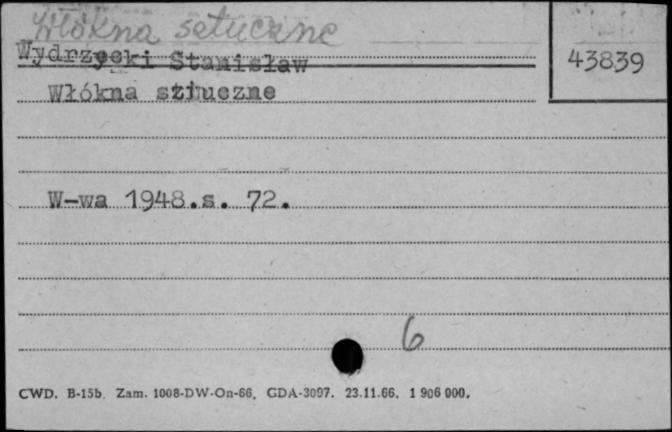 Włókna sztuczne
Wydrzycki Stanisław
43839
Włókna sztuczne
W-wa 1948.s. 72.
6
CWD. B-15b. Zam. 1008-DW-On-66. GDA-3097. 23.11.66. 1 906 000.